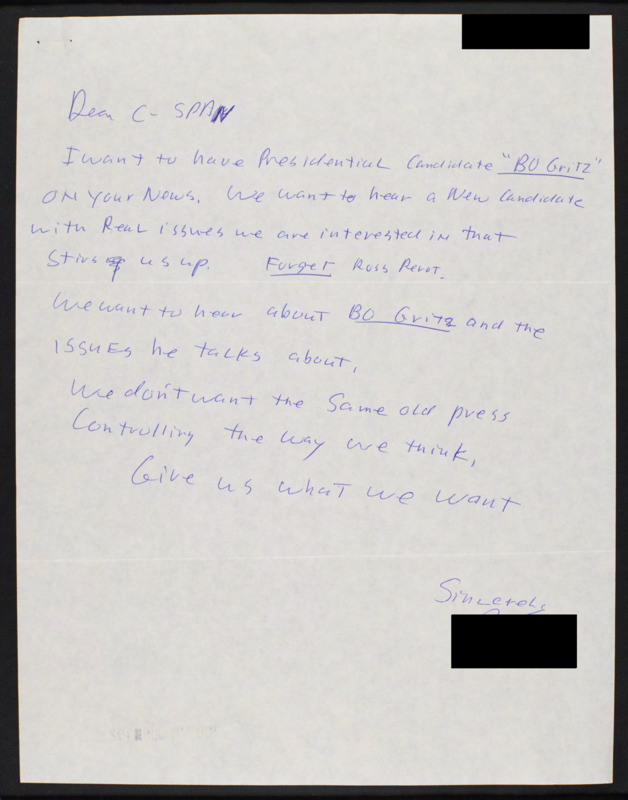 Dear C-SPAN
I want to have Presidential Candidate "BO Gritz"
ON Your News. We want to hear a New Candidate
with Real issues we are interested in that
Stirs us up. Forget Ross Perot.
We want to hear about BO Gritz and the
ISSUES he talks about,
We don't want the Same old press
Controlling the way we think,
Give us what we want
Sincerely